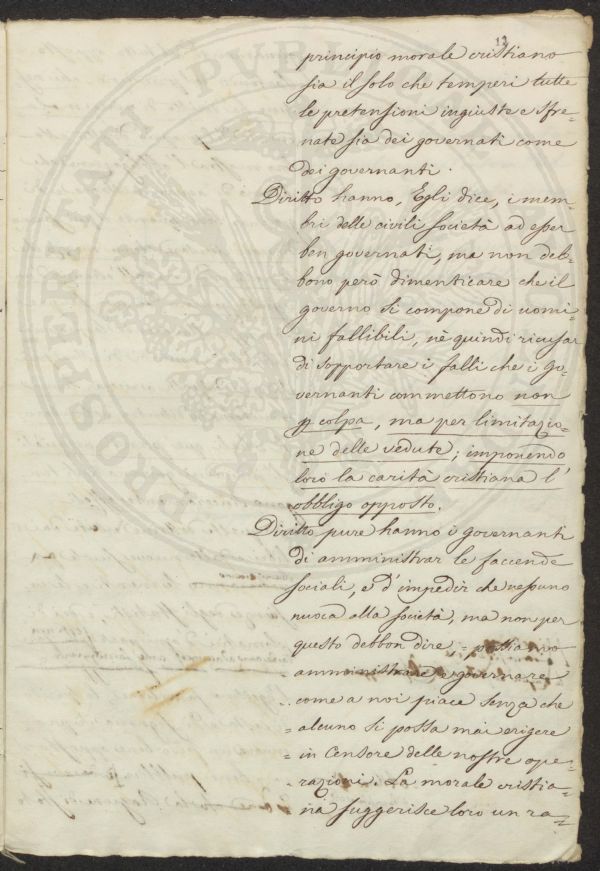 13
principio morale cristiano
sia il solo che temperi tutte
le pretensioni ingiuste e sfre-
nate sia dei governati come
dei governanti.
Diritto hanno, Egli dice, i mem-
bri delle civili società ad esser
ben governati, ma non deb-
bono però dimenticare che il
governo si compone di uomi-
ni fallibili, nè quindi ricusar
di sopportare i falli che i go-
vernanti commettono non
p colpa, ma per limitazio-
ne delle vedute; imponendo
loro la carità cristiana l'
obbligo opposto.
Diritto pure hanno i governanti
di amministrar le faccende
sociali, e d'impedir che nessuno
nuoca alla società, ma non per
questo debbon dire = possiamo
- amministrare e governare
- come a noi piace senza che
= alcuno si possa mai erigere
= in Censore delle nostre ope-
= razioni. La morale cristia-
na suggerisce loro un ra-
PROSPERITATI PVBLICAE